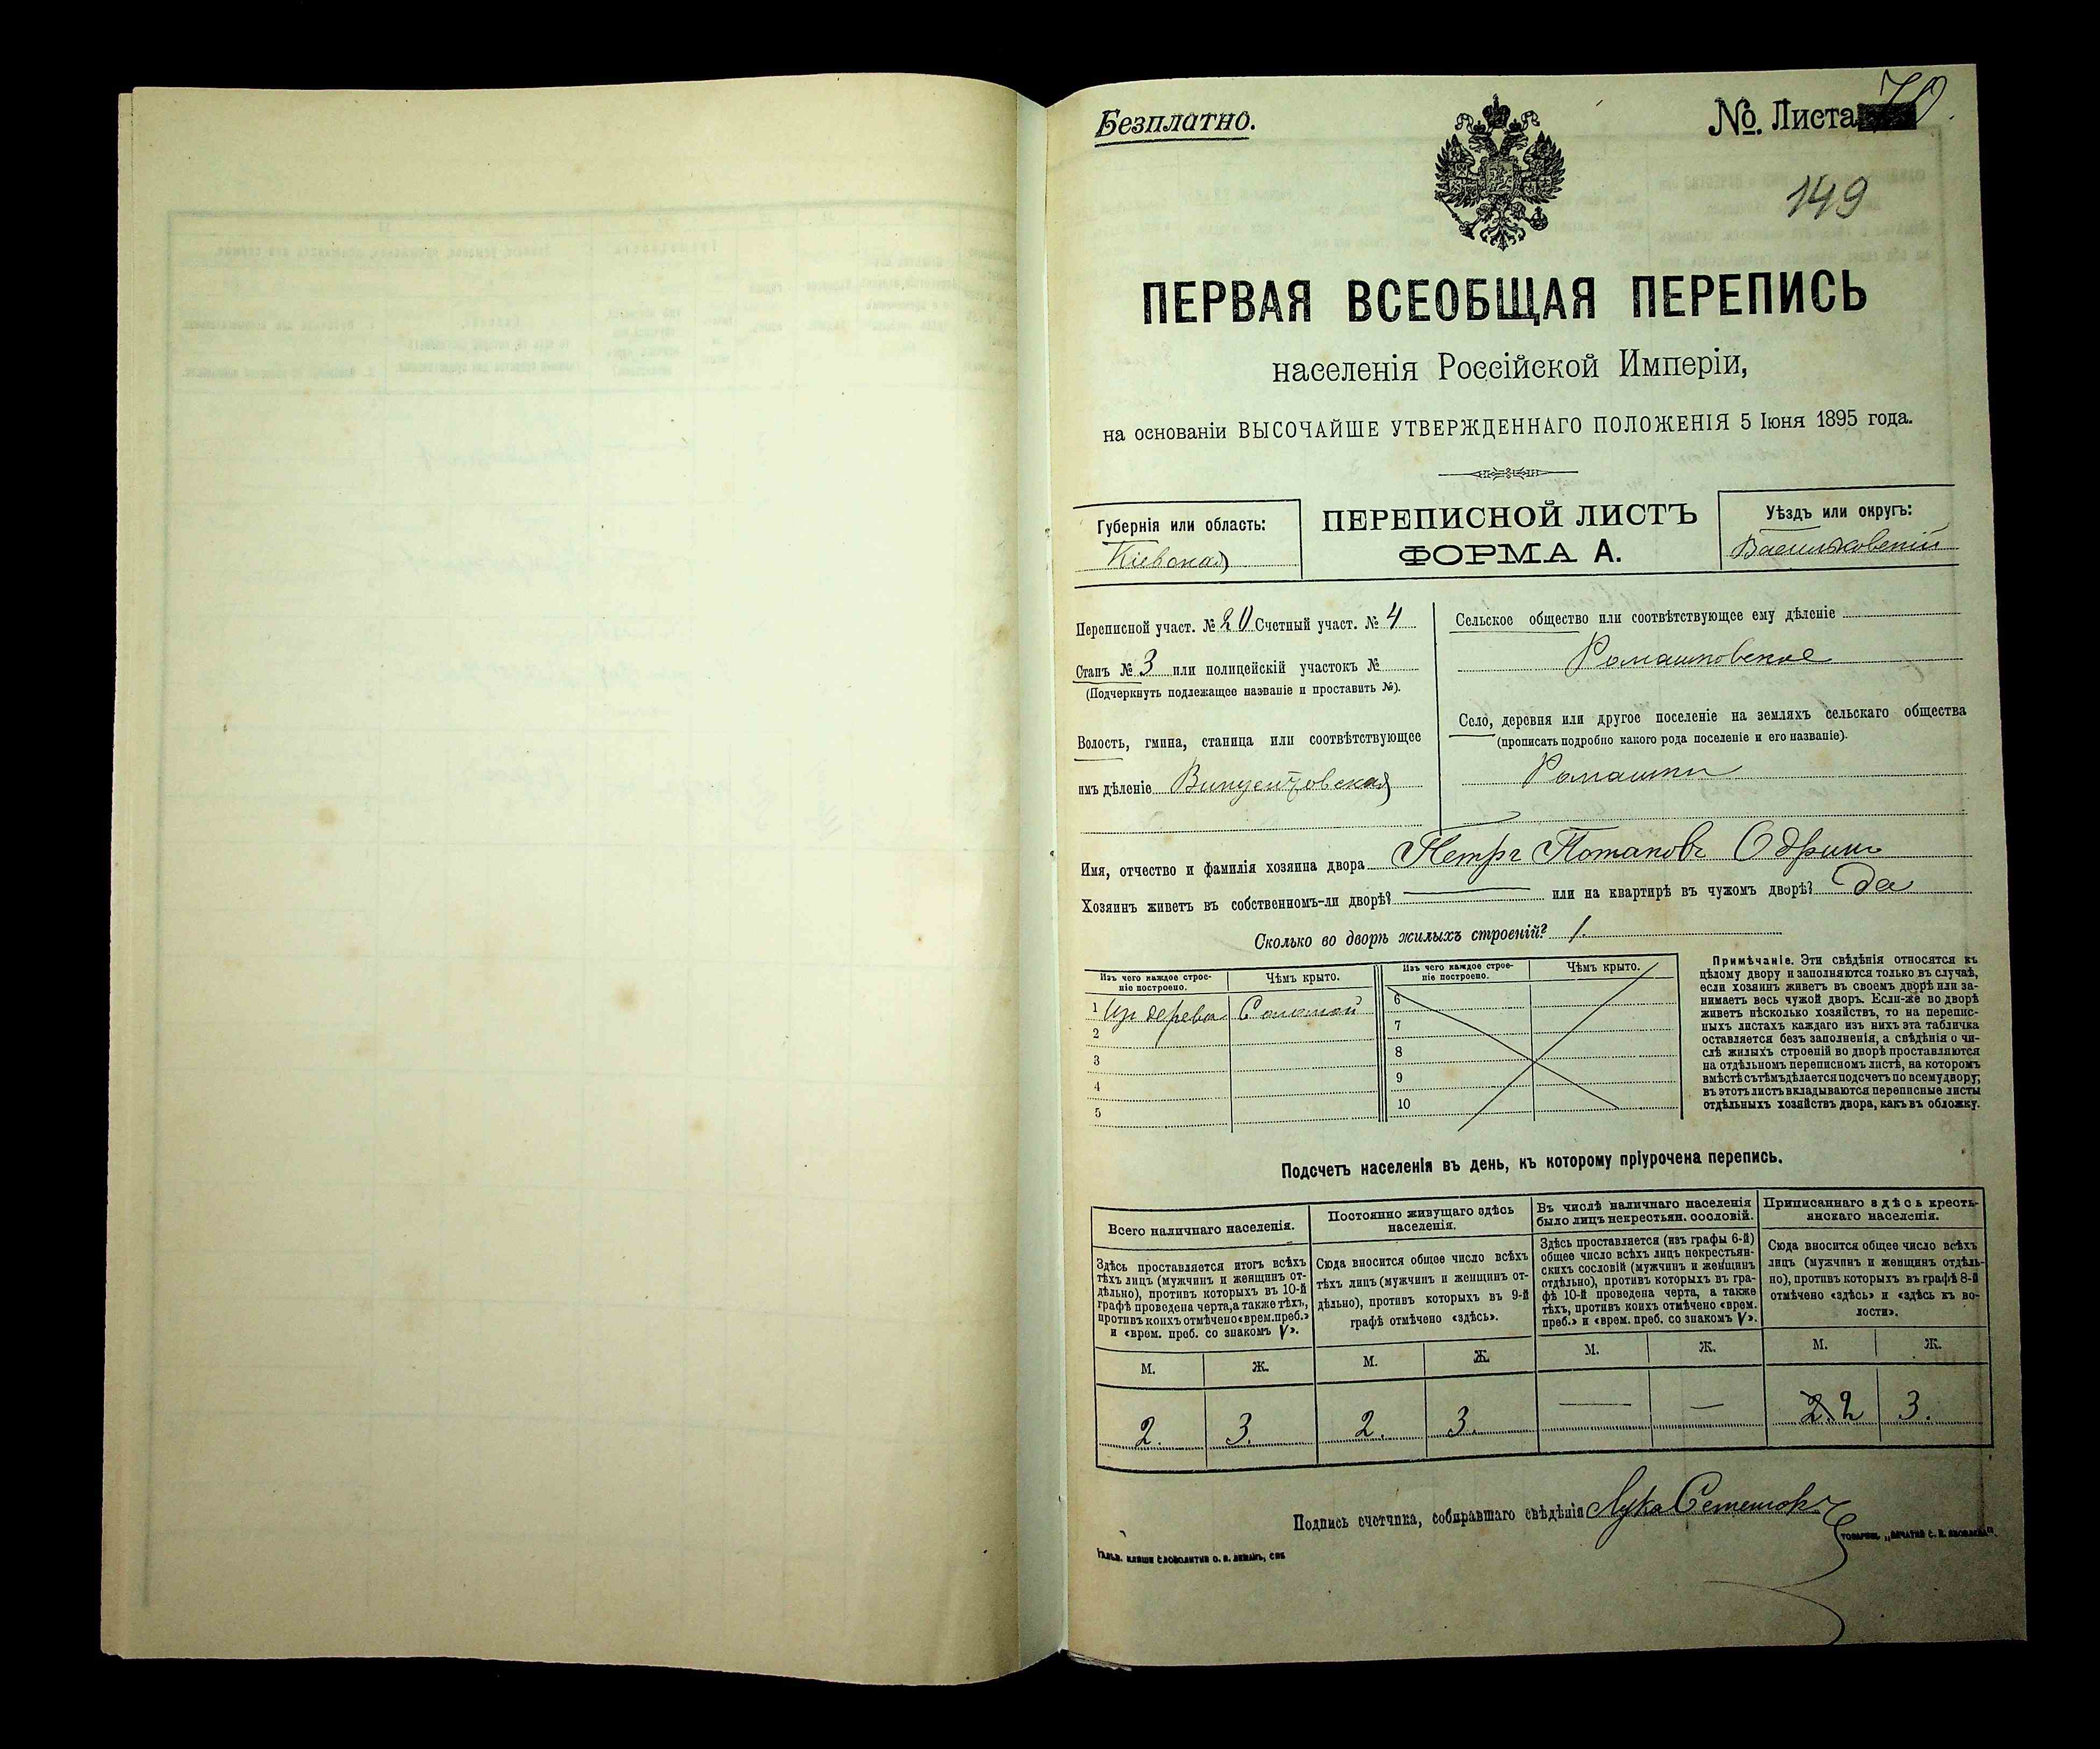 Безплатно.
№. Листа 70.
149
ПЕРВАЯ ВСЕОБЩАЯ ПЕРЕПИСЬ
населенія Россійской Имперіи,
на основаніи ВЫСОЧАЙШЕ УТВЕРЖДЕННАГО ПОЛОЖЕНІЯ 5 Іюня 1895 года.
Губернія или область:
Кіевская
ПЕРЕПИСНОЙ ЛИСТЪ
ФОРМА А.
Уѣздъ или округъ:
Васильковскій
Переписной участ. № 20 Счетный участ. № 4
Станъ № 3 или полицейскій участокъ №
(Подчеркнуть подлежащее названіе и проставить №).
Волость, гмина, станица или соотвѣтствующее
имъ дѣленіе Винцентовская
Сельское общество или соотвѣтствующее ему дѣленіе
Ромашковское
Село, деревня или другое поселеніе на земляхъ сельскаго общества
(прописать подробно какого рода поселеніе и его названіе).
Ромашки
Имя, отчество и фамилія хозяина двора Петръ Потаповъ
Хозяинъ живетъ въ собственномъ-ли дворѣ? — или на квартирѣ въ чужомъ дворѣ? да
Сколько во дворѣ жилыхъ строеній? 1.
Изъ чего каждое строе-
ніе построено.
Чѣмъ крыто.
1 Изъ дерева Соломой
2
3
4
5
Изъ чего каждое строе-
ніе построено.
Чѣмъ крыто.
6
7
8
9
10
Примѣчаніе. Эти свѣдѣнія относятся къ
цѣлому двору и заполняются только въ случаѣ,
если хозяинъ живетъ въ своемъ дворѣ или за-
нимаетъ весь чужой дворъ. Если-же во дворѣ
живетъ нѣсколько хозяйствъ, то на перепис-
ныхъ листахъ каждаго изъ нихъ эта табличка
оставляется безъ заполненія, а свѣдѣнія о чи-
слѣ жилыхъ строеній во дворѣ проставляются
на отдѣльномъ переписномъ листѣ, на которомъ
вмѣстѣ съ тѣмъ дѣлается подсчетъ по всему двору;
въ этотъ листъ вкладываются переписные листы
отдѣльныхъ хозяйствъ двора, какъ въ обложку.
Подсчетъ населенія въ день, къ которому пріурочена перепись.
Всего наличнаго населенія.
Здѣсь проставляется итогъ всѣхъ
тѣхъ лицъ (мужчинъ и женщинъ от-
дѣльно), противъ которыхъ въ 10-й
графѣ проведена черта, а также тѣхъ,
противъ коихъ отмѣчено «врем. преб.»
и «врем. преб. со знакомъ V».
М. Ж.
2. 3.
Постоянно живущаго здѣсь
населенія.
Сюда вносится общее число всѣхъ
тѣхъ лицъ (мужчинъ и женщинъ от-
дѣльно), противъ которыхъ въ 9-й
графѣ отмѣчено «здѣсь».
М. Ж.
2. 3.
Въ числѣ наличнаго населенія
было лицъ некрестьян. сословій.
Здѣсь проставляется (изъ графы 6-й)
общее число всѣхъ лицъ некрестьян-
скихъ сословій (мужчинъ и женщинъ
отдѣльно), противъ которыхъ въ гра-
фѣ 10-й проведена черта, а также
тѣхъ, противъ коихъ отмѣчено «врем.
преб.» и «врем. преб. со знакомъ V».
М. Ж.
— —
Приписаннаго здѣсь кресть-
янскаго населенія.
Сюда вносится общее число всѣхъ
лицъ (мужчинъ и женщинъ отдѣль-
но), противъ которыхъ въ графѣ 8-й
отмѣчено «здѣсь» и «здѣсь къ во-
лости».
М. Ж.
2. 2 3.
Подпись счетчика, собиравшаго свѣдѣнія Лука